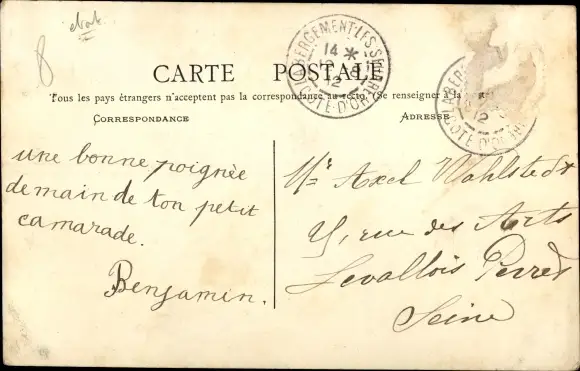 8
CARTE POSTALE
Tous les pays étrangers n'acceptent pas la correspondance au recto. (Se renseigner à la
CORRESPONDANCE
ADRESSE
une bonne poignée
de main de ton petit
camarade.
Benjamin.
Mr Axel Wahlstedt
rue des Arts
Levallois Perret
Seine
BERGEMENT-LES-SEURRE
14 *
12
CÔTE-D'OR
12
CÔTE-D'OR